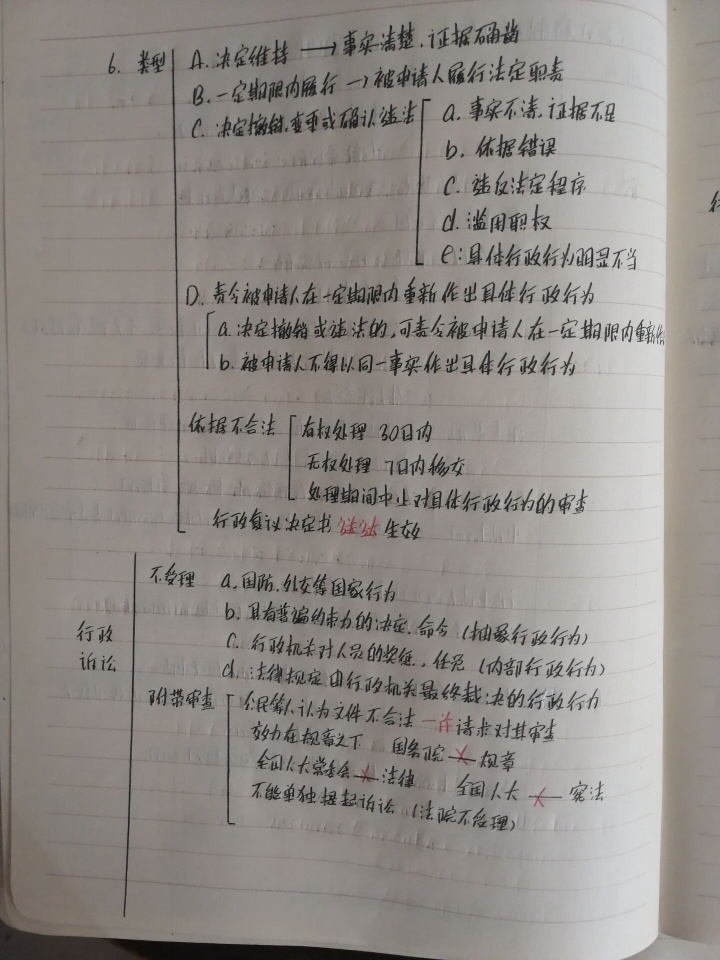 6. 类型 A. 决定维持 → 事实清楚、证据确凿
B. 一定期限内履行 → 被申请人履行法定职责
C. 决定撤销、变更或确认违法
a. 事实不清、证据不足
b. 依据错误
c. 违反法定程序
d. 滥用职权
e: 具体行政行为明显不当
D. 责令被申请人在一定期限内重新作出具体行政行为
a. 决定撤销或违法的,可责令被申请人在一定期限内重新作出
b. 被申请人不得以同一事实作出具体行政行为
依据不合法 有权处理 30日内
无权处理 7日内移交
处理期间中止对具体行政行为的审查
行政复议决定书 送达 生效
行政诉讼
不受理 a. 国防、外交等国家行为
b. 具有普遍约束力的决定、命令(抽象行政行为)
c. 行政机关对人员的奖惩、任免(内部行政行为)
d. 法律规定由行政机关最终裁决的行政行为
附带审查 公民等认为文件不合法 一并请求对其审查
效力在规章之下 国务院 × 规章
全国人大常委会 × 法律 全国人大 × 宪法
不能单独提起诉讼(法院不受理)